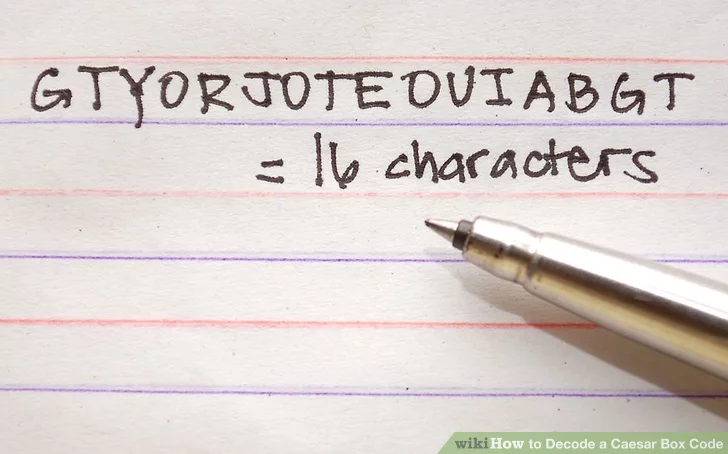 GTYORJOTEOUIABGT
= 16 characters
wikiHow to Decode a Caesar Box Code